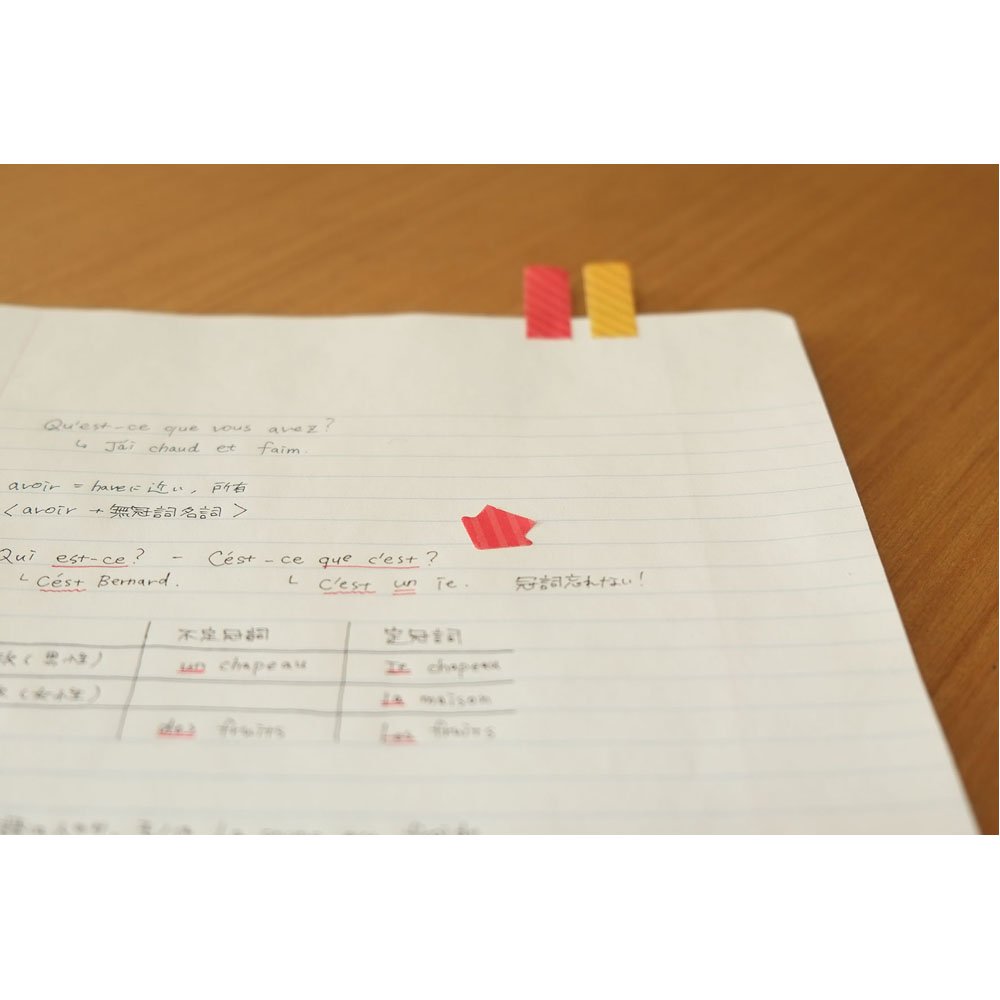 Qu'est-ce que vous avez?
↳ J'ai chaud et faim.
avoir = haveに近い, 所有
<avoir + 無冠詞名詞>
Qui est-ce? - C'ést-ce que c'est?
└ C'ést Bernard. └ C'est un 冠詞忘れない!
不定冠詞 定冠詞
un chapeau le chapeau
la maison
des les